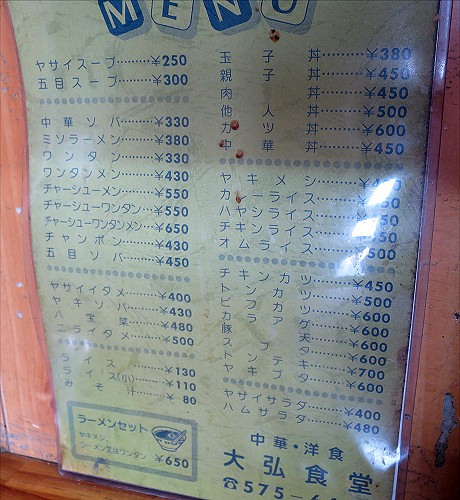 MENU
ヤサイスープ………¥250
五目スープ………¥300
中華ソバ………¥330
ミソラーメン………¥380
ワンタン………¥330
ワンタンメン………¥430
チャーシューメン………¥550
チャーシューワンタン………¥550
チャーシューワンタンメン………¥650
チャンポン………¥430
五目ソバ………¥450
ヤサイイタメ………¥400
ヤキソバ………¥430
八宝菜………¥480
ニライタメ………¥500
ライス………¥130
ライス(小)………¥110
みそ汁………¥80
ラーメンセット
ヤキメシ、
ラーメン又はワンタン
¥650
玉子丼………¥380
親子丼………¥450
肉丼………¥450
他人丼………¥500
カツ丼………¥600
中華丼………¥450
ヤキメシ………
カレーライス………
ハヤシライス………
チキンライス………
オムライス………¥500
チキンカツ………¥450
トンカツ………¥500
ビフカツ………¥600
カラアゲ………¥600
豚天………¥600
スブタ………¥600
トンテキ………¥700
ヤキブタ………¥600
ヤサイサラダ………¥400
ハムサラダ………¥480
中華・洋食
大弘食堂
☎575-